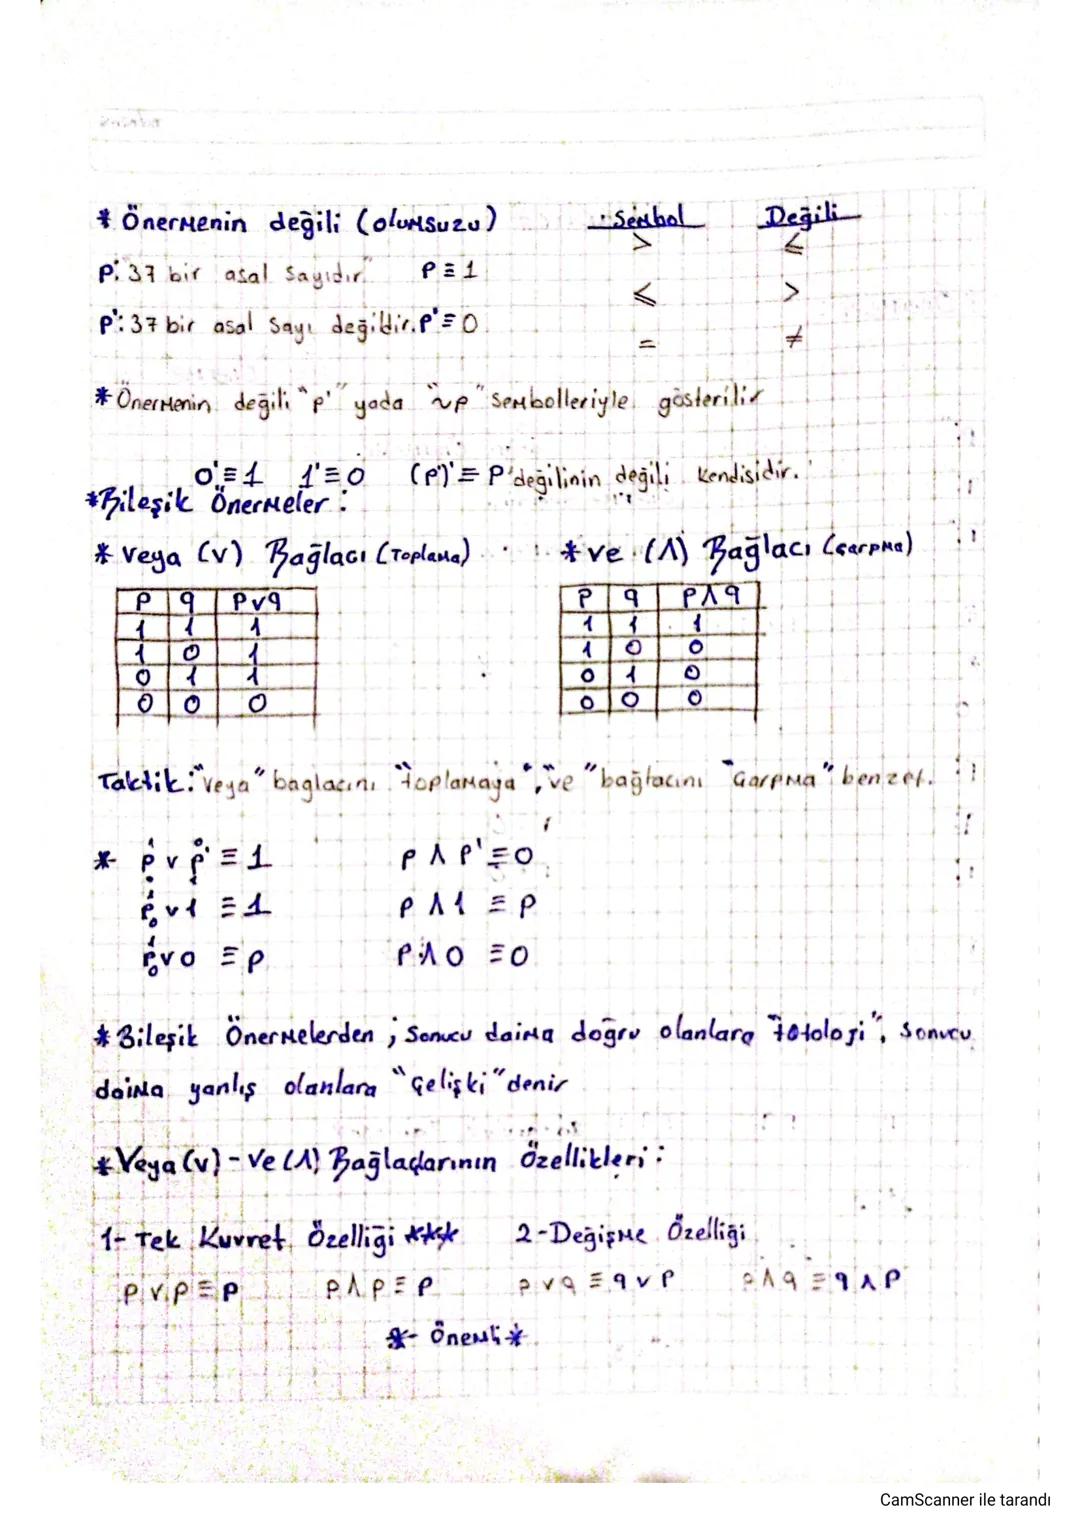 * Önermenin değili (olumsuzu)
Sembol Değili
> ≤
p: 37 bir asal sayıdır. p ≡ 1
≤ >
p': 37 bir asal sayı değildir. p' ≡ 0
= ≠
* Önermenin değili "p'" yada "~p" sembolleriyle gösterilir
0' ≡ 1 1' ≡ 0 (p')' ≡ p değilinin değili kendisidir.
* Bileşik Önermeler :
* Veya (v) Bağlacı (Toplama)
p q pvq
1 1 1
1 0 1
0 1 1
0 0 0
* ve (Λ) Bağlacı (çarpma)
p q pΛq
1 1 1
1 0 0
0 1 0
0 0 0
Taktik: "veya" baglacını "toplamaya", "ve" bağlacını "çarpma" benzet.
* p v p' ≡ 1 p Λ p' ≡ 0
p v 1 ≡ 1 p Λ 1 ≡ p
p v 0 ≡ p p Λ 0 ≡ 0
* Bileşik Önermelerden ; Sonucu daima doğru olanlara "totoloji", sonucu
daima yanlış olanlara "çelişki" denir
* Veya (v) - Ve (Λ) Bağlaçlarının Özellikleri :
1- Tek Kuvvet Özelliği *** 2- Değişme Özelliği
p v p ≡ p p Λ p ≡ p p v q ≡ q v p p Λ q ≡ q Λ p
*- Önemli *
CamScanner ile tarandı